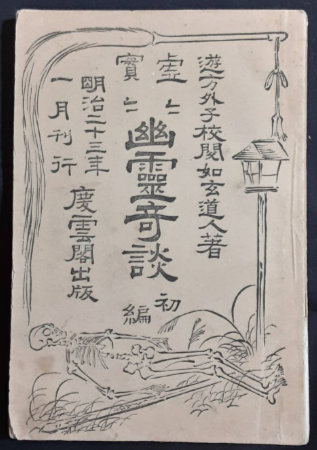 遊方外子校閲如玄道人著
虚々實々
幽靈奇談
初編
明治二十三年
一月刊行
慶雲閣出版